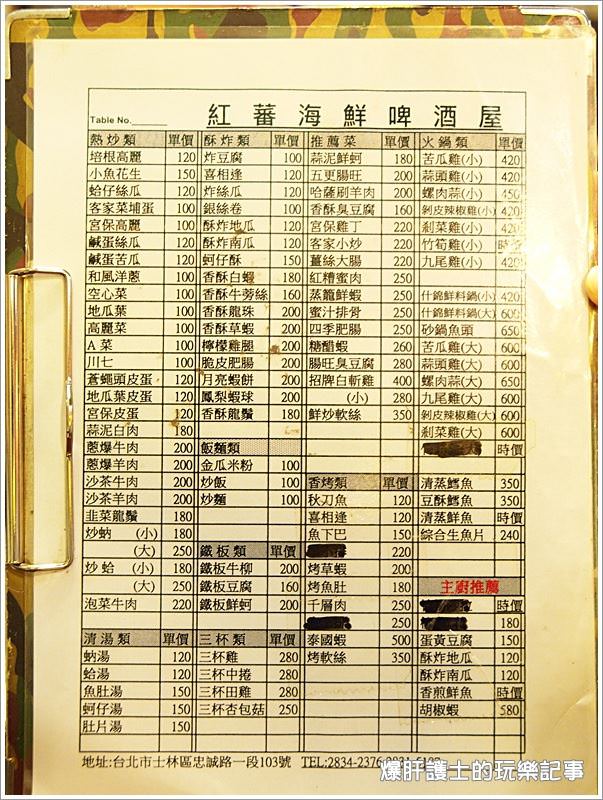 Table No.
紅蕃海鮮啤酒屋
熱炒類 單價
培根高麗 120
小魚花生 150
蛤仔絲瓜 120
客家菜埔蛋 100
宮保高麗 100
鹹蛋絲瓜 120
鹹蛋苦瓜 120
和風洋蔥 100
空心菜 100
地瓜葉 100
高麗菜 100
A菜 100
川七 100
蒼蠅頭皮蛋 120
地瓜葉皮蛋 120
宮保皮蛋 120
蒜泥白肉 180
蔥爆牛肉 200
蔥爆羊肉 200
沙茶牛肉 200
沙茶羊肉 200
韭菜龍鬚 180
炒蚋 (小) 180
(大) 250
炒蛤 (小) 180
(大) 250
泡菜牛肉 220
清湯類 單價
蚋湯 120
蛤湯 120
魚肚湯 150
蚵仔湯 150
肚片湯 150
酥炸類 單價
炸豆腐 100
喜相逢 120
炸絲瓜 120
銀絲卷 100
酥炸地瓜 120
酥炸南瓜 120
蚵仔酥 150
香酥白蝦 180
香酥牛蒡絲 160
香酥龍珠 200
香酥草蝦 200
檸檬雞腿 200
脆皮肥腸 200
月亮蝦餅 200
鳳梨蝦球 200
香酥龍鬚 180
飯麵類
金瓜米粉 100
炒飯 100
炒麵 100
鐵板類 單價
鐵板牛柳 200
鐵板豆腐 160
鐵板鮮蚵 200
三杯類 單價
三杯雞 280
三杯中捲 280
三杯田雞 280
三杯杏包菇 250
推薦菜 單價
蒜泥鮮蚵 180
五更腸旺 200
哈薩刷羊肉 200
香酥臭豆腐 160
宮保雞丁 220
客家小炒 220
薑絲大腸 220
紅糟蜜肉 250
蒸籠鮮蝦 250
蜜汁排骨 250
四季肥腸 250
糖醋蝦 260
腸旺臭豆腐 280
招牌白斬雞 400
(小) 280
鮮炒軟絲 350
香烤類 單價
秋刀魚 120
喜相逢 120
魚下巴 150
220
烤草蝦 200
烤魚肚 180
千層肉 250
250
泰國蝦 500
烤軟絲 350
火鍋類 單價
苦瓜雞(小) 420
蒜頭雞(小) 420
螺肉蒜(小) 450
剝皮辣椒雞(小) 420
剎菜雞(小) 420
竹筍雞(小) 時價
九尾雞(小) 420
什錦鮮料鍋(小) 420
什錦鮮料鍋(大) 600
砂鍋魚頭 650
苦瓜雞(大) 600
蒜頭雞(大) 600
螺肉蒜(大) 650
九尾雞(大) 600
剝皮辣椒雞(大) 600
剎菜雞(大) 600
時價
清蒸鱈魚 350
豆酥鱈魚 350
清蒸鮮魚 時價
綜合生魚片 240
主廚推薦
時價
180
蛋黃豆腐 150
酥炸地瓜 120
酥炸南瓜 120
香煎鮮魚 時價
胡椒蝦 580
地址:台北市士林區忠誠路一段103號 TEL:2834-2376
爆肝護士的玩樂記事